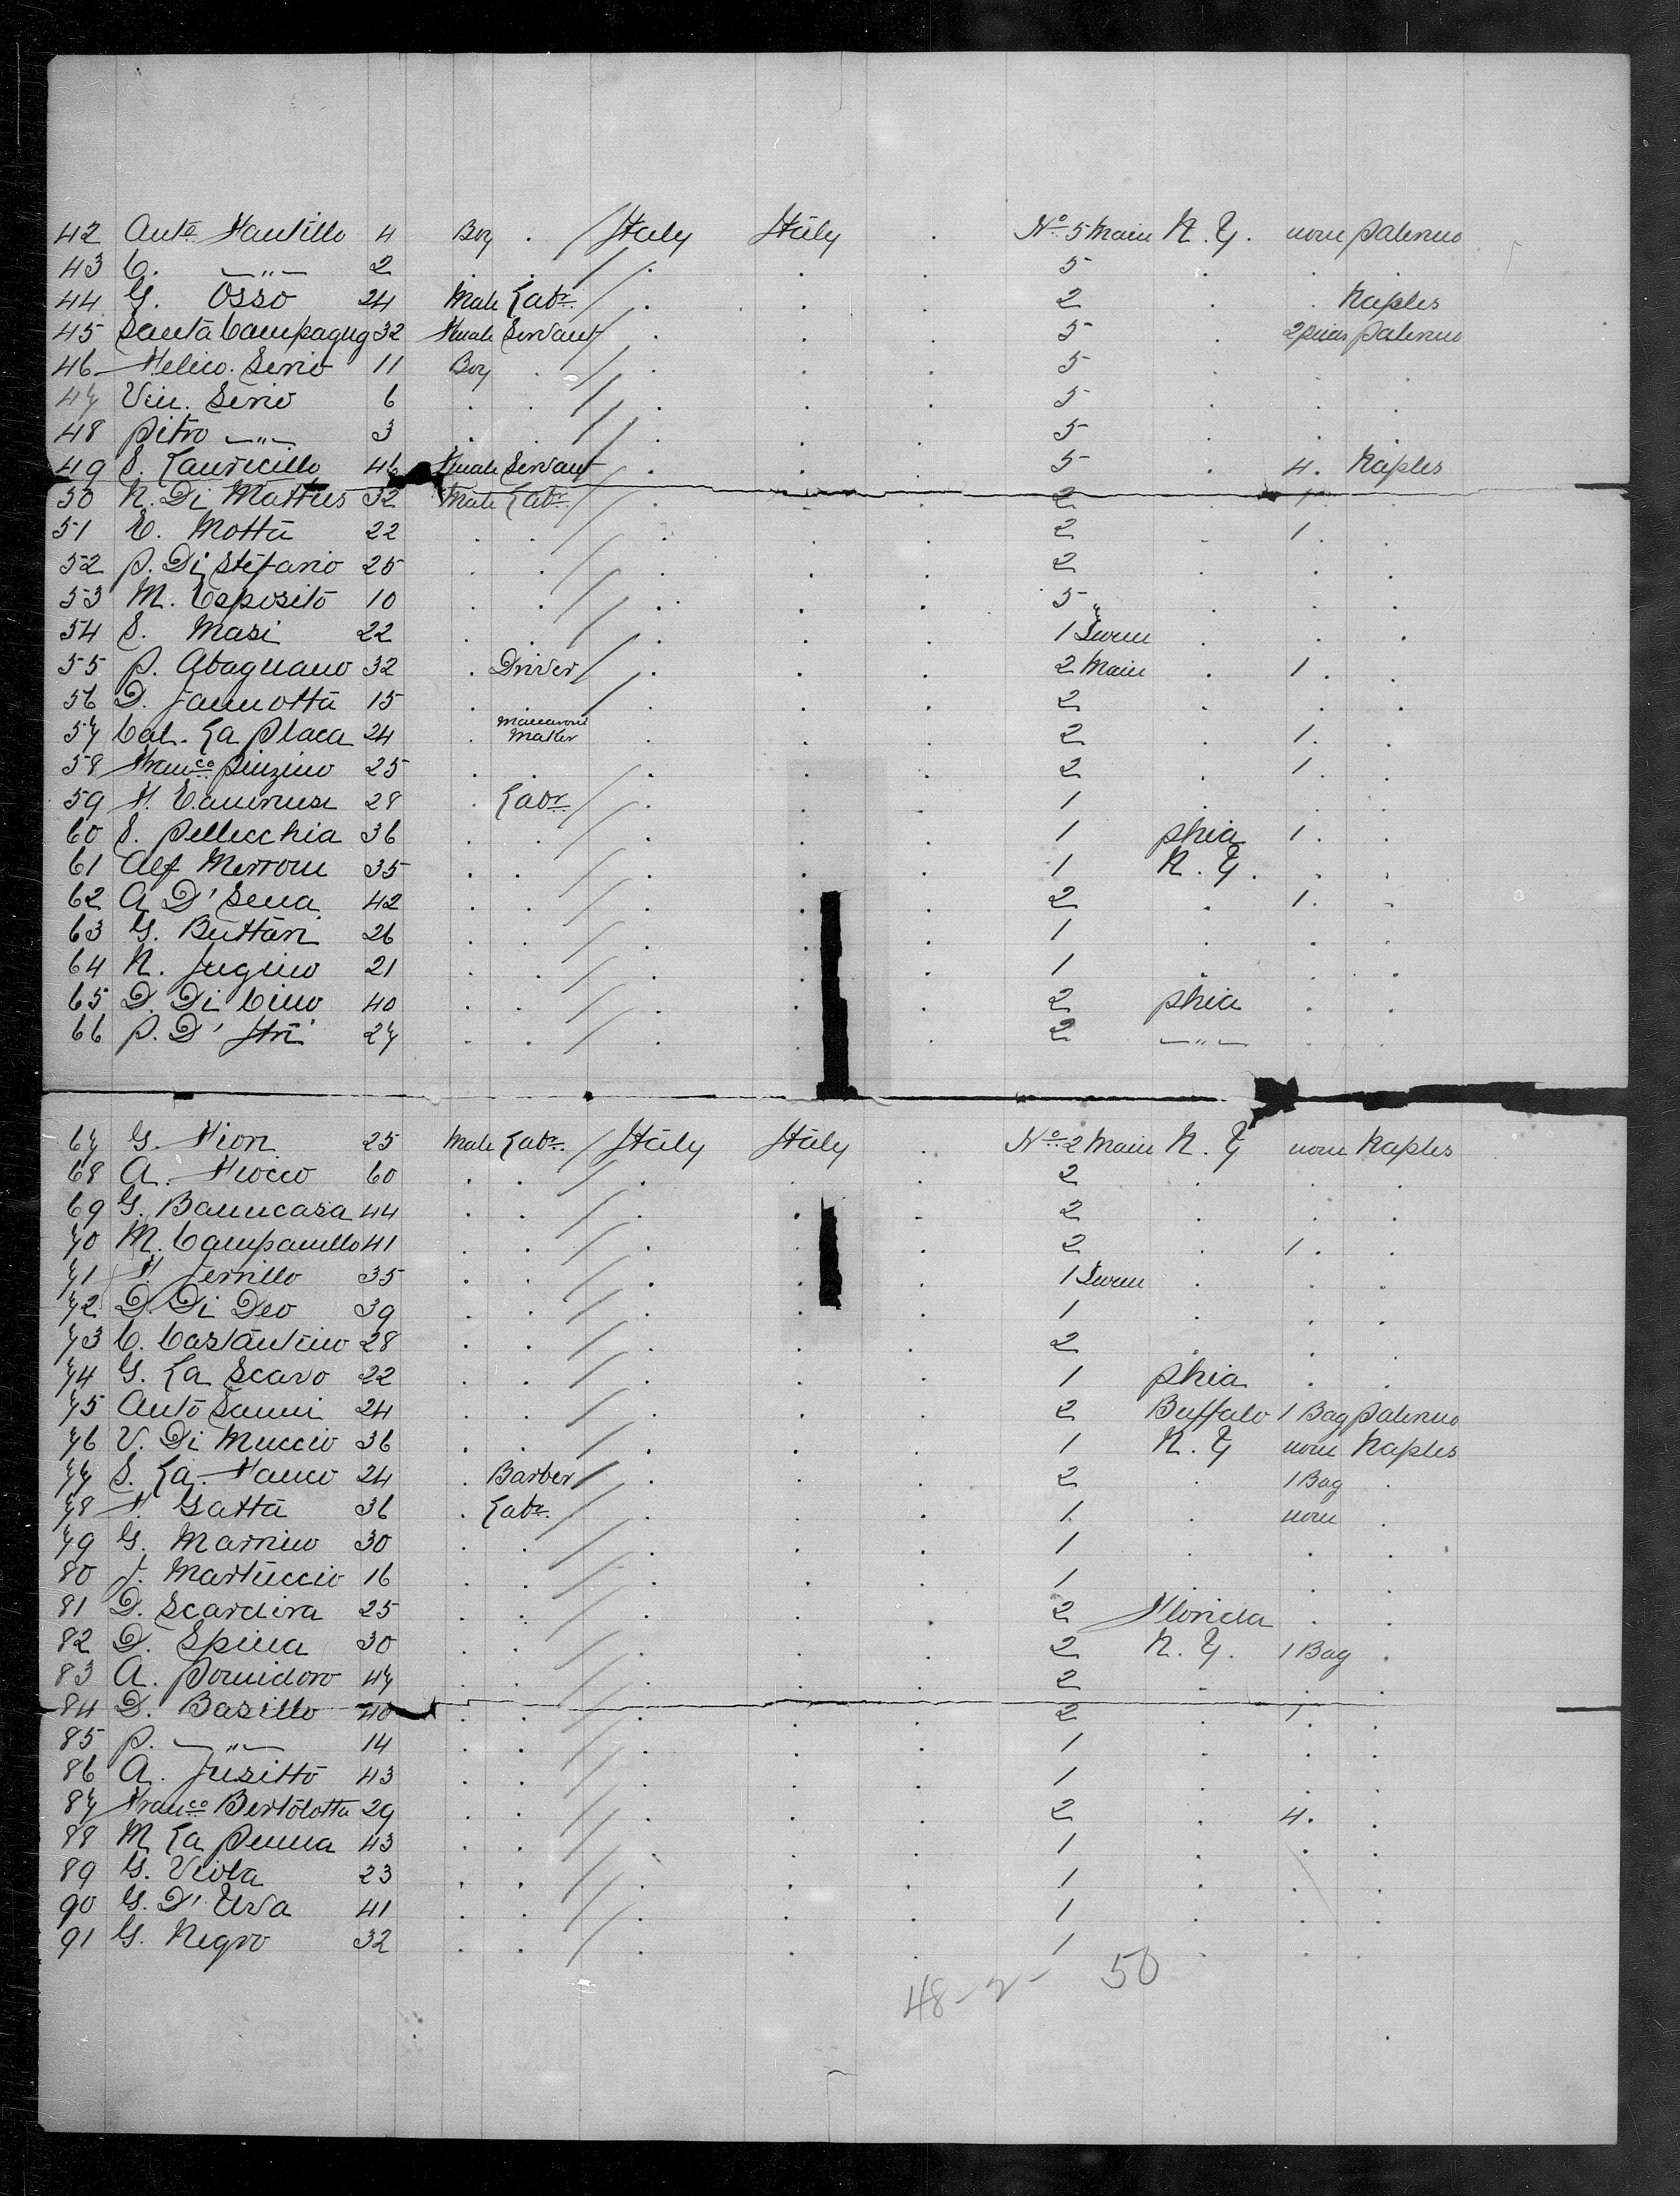 42 Anto. Fantillo 4 Boy . / Italy Italy . No. 5 Main N.Y. none Palermo
43 C. —"— 2 . . / . . . 5 . . .
44 G. Osso 24 Male Labr. / . . . 2 . . Naples
45 Santa Campagng 32 Female Servant / . . . 5 . 2 pieces Palermo
46 Felico. Serio 11 Boy . / . . . 5 . . .
47 Vin. Serio 6 . . / . . . 5 . . .
48 Pitro —"— 3 . . / . . . 5 . . .
49 S. Lauricillo 46 Female Servant / . . . 5 . 4 . Naples
50 N. Di Matteis 32 Male Labr. / . . . 2 . 1 . .
51 E. Motta 22 . . / . . . 2 . 1 . .
52 P. Di Stefano 25 . . / . . . 2 . . .
53 M. Esposito 10 . . / . . . 5 . . .
54 S. Masi 22 . . / . . . 1 . . .
55 P. Abagnano 32 . Driver / . . . 2 Main . 1 . .
56 D. Jannotta 15 . . / . . . 2 . . .
57 Cal. La Placa 24 . Maccaroni Maker . . . 2 . 1 . .
58 Franco. Pinzino 25 . . / . . . 2 . 1 . .
59 F. 28 . Labr. / . . . 1 . . .
60 S. Pellecchia 36 . . / . . . 1 Phia 1 . .
61 Alf Merrone 35 . . / . . . 1 N.Y. . .
62 A D'Sena 42 . . / . . . 2 . 1 . .
63 G. Buttari 26 . . / . . . 1 . . .
64 N. Jugino 21 . . / . . . 1 . . .
65 D. Di Cino 40 . . / . . . 2 Phia . .
66 P. D' 27 . . / . . . 2 —"— . .
67 G. Fiori 25 Male Labr. / Italy Italy . No. 2 Main N.Y none Naples
68 A. Fiocco 60 . . / . . . 2 . . .
69 G. Banncasa 44 . . / . . . 2 . . .
70 M. Campanello 41 . . / . . . 2 . 1 . .
71 F. Jerrillo 35 . . / . . . 1 . . .
72 D. Di Deo 39 . . / . . . 1 . . .
73 C. Costantino 28 . . / . . . 2 . . .
74 G. La Scavo 22 . . / . . . 1 Phia . .
75 Anto Sanni 24 . . / . . . 2 Buffalo 1 Bag Palermo
76 V. Di Muccio 36 . . / . . . 1 N.Y none Naples
77 S. La Franco 24 . Barber / . . . 2 . 1 Bag .
78 F. Gatta 36 . Labr. / . . . 1 . none .
79 G. Marnino 30 . . / . . . 1 . . .
80 J. Martuccio 16 . . / . . . 1 . . .
81 D. Scardira 25 . . / . . . 2 Florida . .
82 D. Spina 30 . . / . . . 2 N.Y. 1 Bag .
83 A. Pomidoro 47 . . / . . . 2 . . .
84 D. Basillo 40 . . / . . . 2 . 1 . .
85 P. —"— 14 . . / . . . 1 . . .
86 A. Jusitto 43 . . / . . . 1 . . .
87 Franco. Bertolotta 29 . . / . . . 2 . 4 . .
88 M La Penna 43 . . / . . . 1 . . .
89 G. Viola 23 . . / . . . 1 . . .
90 G. D'Urva 41 . . / . . . 1 . . .
91 G. Negro 32 . . / . . . 1 . . .
48-2- 50